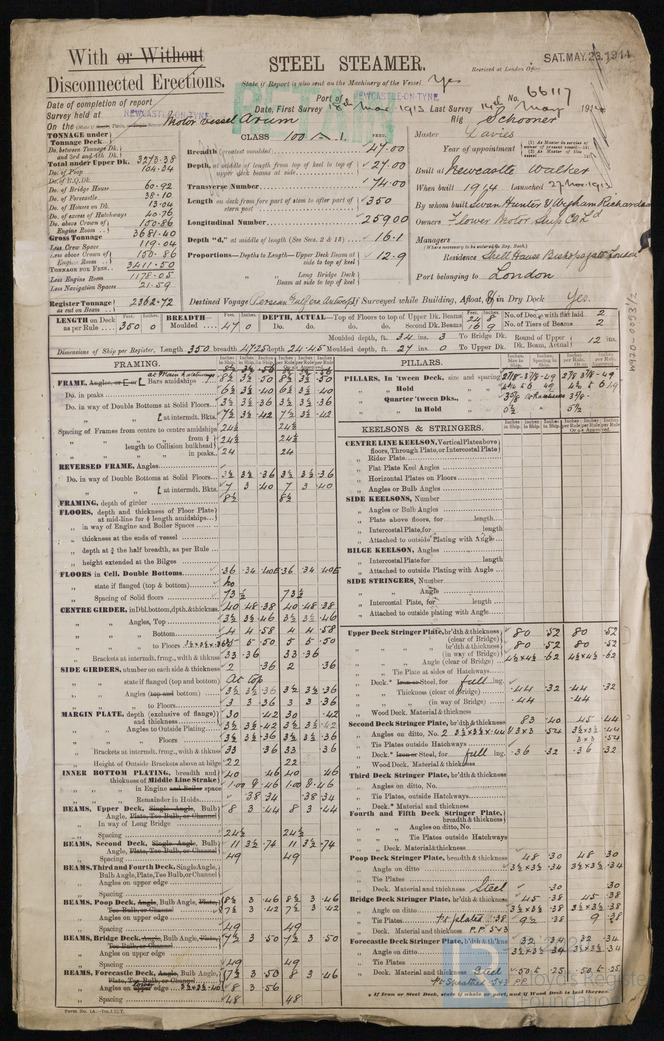 With or Without
Disconnected Erections.
STEEL STEAMER.
Received at London Office
SAT. MAY. 23. 1914
State if Report is also sent on the Machinery of the Vessel Yes
No. 66117
Date of completion of report
Port of NEWCASTLE-ON-TYNE
Survey held at NEWCASTLE-ON-TYNE
Date, First Survey
1913 Last Survey 14th May 1914
On the Motor Vessel Arum
Rig Schooner
TONNAGE under
Tonnage Deck
Do. between Tonnage Dk. and 3rd and 4th Dk.
Total under Upper Dk. 3273.38
Do. of Poop 104.34
Do. of R.Q.Dk.
Do. of Bridge House 60.92
Do. of Forecastle 38.10
Do. of Houses on Dk. 13.04
Do. of excess of Hatchways 40.76
Do. above Crown of Engine Room 150.86
Gross Tonnage 3681.40
Less Crew Space 119.04
Less above Crown of Engine Room 150.86
TONNAGE FOR FEES 3411.50
Less Engine Room 1178.05
Less Navigation Spaces 21.59
Register Tonnage as cut on Beam 2362.72
CLASS 100 A.1.
FEET.
Breadth (greatest moulded) 47.00
Depth, at middle of length from top of keel to top of upper deck beams at side 27.00
Transverse Number 74.00
Length on deck from fore part of stem to after part of stern post 350
Longitudinal Number 25900
Depth "d," at middle of length (See Secs. 2 & 13) 16.1
Proportions—Depths to Length—Upper Deck Beam at side to top of keel 12.9
Long Bridge Deck Beam at side to top of keel
Master Davies
Year of appointment
Built at Newcastle Walker
When built 1914 Launched
By whom built Swan Hunter & Wigham Richardson
Owners Flower Motor Ship Co Ld
Managers
(Where necessary to be entered in Reg. Book.)
Residence Shell House Bishopsgate London
Port belonging to London
Destined Voyage Persian Gulf
Surveyed while Building, Afloat, or in Dry Dock Yes.
LENGTH on Deck as per Rule 350 0
BREADTH— Moulded 47 0
DEPTH, ACTUAL—Top of Floors to top of Upper Dk. Beams 24 8
Do. do. do. Second Dk. Beams 16 9
No. of Decks with flat laid 2
No. of Tiers of Beams 2
Moulded depth, ft. 34 ins. 3 To Bridge Dk.
Round of Upper Dk. Beam, Actual 12 ins.
Dimensions of Ship per Register, Length 350 breadth 47.25 Depth 24.45 Moulded depth, ft. 27 ins. 0 To Upper Dk.
FRAMING.
FRAME, Angles, or Bars amidships
Do. in peaks
Do. in way of Double Bottoms at Solid Floors
at intermdt. Bkts.
Spacing of Frames from centre to centre amidships 24½ 24½
length to Collision bulkhead 24½ 24½
in peaks 24 24
REVERSED FRAME, Angles
Do. in way of Double Bottoms at Solid Floors 3½ 3½ .36 3½ 3½ .36
at intermdt. Bkts. 7 3 .40 7 3 .40
FRAMING, depth of girder 8½ 8½
FLOORS, depth and thickness of Floor Plate at mid-line for ½ length amidships
in way of Engine and Boiler Spaces
thickness at the ends of vessel
depth at ¾ the half breadth, as per Rule
height extended at the Bilges
FLOORS in Cell. Double Bottoms
state if flanged (top & bottom) no
Spacing of Solid floors 73½ 73½
CENTRE GIRDER, in Dbl. bottom, dpth. & thicknss. 40 .48 .38 40 .48 .38
Angles, Top 3½ 3½ .46 3½ 3½ .46
Bottom 4 4 .58 4 4 .58
to Floors 5 5 .50 5 5 .50
Brackets at intermdt. frmg., wdth & thknss 33 .36 33 .36
SIDE GIRDERS, number on each side & thickness 2 .36 2 .36
state if flanged (top and bottom) At top
Angles (top and bottom) 3½ 3½ .36 3½ 3½ .36
to Floors 3 3 .36 3 3 .36
MARGIN PLATE, depth (exclusive of flange) and thickness 30 .42 30 .42
Angles to Outside Plating 3½ 3½ .42 3½ 3½ .42
Floors 3½ 3½ .36 3½ 3½ .36
Brackets at intermdt. frmg., wdth & thknss 33 .36 33 .36
Height of Outside Brackets above at bilge 22 22
INNER BOTTOM PLATING, breadth and thickness of Middle Line Strake 40 .46 40 .46
in Engine and Boiler space
Remainder in Holds .38 .34 .38 .34
BEAMS, Upper Deck, Single Angle, Bulb Angle, Plate, Tee Bulb, or Channel 8 3 .44 8 3 .44
In way of Long Bridge
Spacing 24½ 24½
BEAMS, Second Deck, Single Angle, Bulb Angle, Plate, Tee Bulb, or Channel 11 3½ .74 11 3½ .74
Spacing 49 49
BEAMS, Third and Fourth Deck, Single Angle, Bulb Angle, Plate, Tee Bulb, or Channel
Angles on upper edge
Spacing
BEAMS, Poop Deck, Angle, Bulb Angle, Plate, Tee Bulb, or Channel 8½ 3 .46 8½ 3 .46
7½ 3 .42 7½ 3 .42
Angles on upper edge
Spacing 49 49
BEAMS, Bridge Deck, Angle, Bulb Angle, Plate, Tee Bulb, or Channel 7½ 3 .50 7½ 3 .50
Angles on upper edge
Spacing 49 49
BEAMS, Forecastle Deck, Angle, Bulb Angle, Plate, Tee Bulb, or Channel 7½ 3 .50 8 3 .46
Angles on upper edge 8 3 .56
Spacing 48 48
Form No. 1A.
PILLARS.
PILLARS, In 'tween Deck, size and spacing
Hold
Quarter 'tween Dks.,
in Hold 5½ 5½
KEELSONS & STRINGERS.
CENTRE LINE KEELSON, Vertical Plate above floors, Through Plate, or Intercostal Plate
Rider Plate
Flat Plate Keel Angles
Horizontal Plates on Floors
Angles or Bulb Angles
SIDE KEELSONS, Number
Angles or Bulb Angles
Plate above floors, for length
Intercostal Plate, for length
Attached to outside Plating with Angle
BILGE KEELSON, Angles
Intercostal Plate, for length
Attached to outside Plating with Angle
SIDE STRINGERS, Number
Angle
Intercostal Plate, for length
Attached to outside plating with Angle
Upper Deck Stringer Plate, br'dth & thickness (clear of Bridge) 80 .52 80 .52
br'dth & thickness (in way of Bridge) 80 .52 80 .52
Angle (clear of Bridge)
Tie Plate at sides of Hatchways
Deck.* Iron or Steel, for full lng.
Thickness (clear of Bridge) .44 .32 .44 .32
(in way of Bridge) .44 .44
Wood Deck. Material & thickness
Second Deck Stringer Plate, br'dth & thickness 83 .40 45 .44
Angles on ditto, No. 2
Tie Plates outside Hatchways
Deck.* Iron or Steel, for full lng. .36 .32 .36 .32
Wood Deck. Material & thickness
Third Deck Stringer Plate, br'dth & thickness
Angles on ditto, No.
Tie Plates, outside Hatchways
Deck.* Material and thickness
Fourth and Fifth Deck Stringer Plate, breadth & thickness
Angles on ditto, No.
Tie Plates outside Hatchways
Deck. Material & thickness
Poop Deck Stringer Plate, breadth & thickness 48 .30 48 .30
Angle on ditto 3½ 3½ .34 3½ 3½ .34
Tie Plates
Deck. Material and thickness Steel .30 .30
Bridge Deck Stringer Plate, br'dth & thickness 45 .38 45 .38
Angle on ditto 3½ 3½ .38 3½ 3½ .38
Tie Plates
Deck. Material and thickness P.P. 5×3
Forecastle Deck Stringer Plate, br'dth & th'kns 32 .34 32 .34
Angle on ditto 3½ 3½ .34 3½ 3½ .34
Tie Plates
Deck. Material and thickness Steel
* If Iron or Steel Deck, state if whole or part, and if Wood Deck is laid thereon.
Lloyd's Register
Foundation